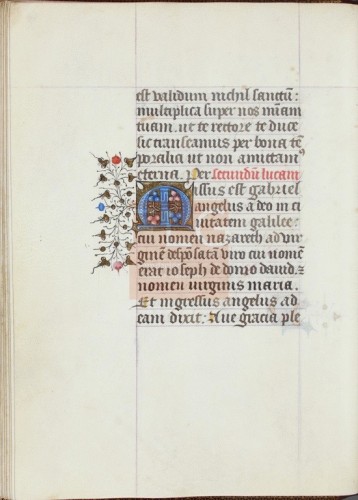 est validum nichil sanctū:
multiplica super nos m̄iam
tuam. ut te rectore te duce
sic transeamus per bona tē
poralia ut non amittam⁹
eterna. per secundū lucam
Missus est gabriel
angelus a deo in ci
uitatem galilee:
cui nomen nazareth ad uir
ginē despōsatā uiro cui nomē
erat ioseph de domo dauid. ⁊
nomen uirginis maria.
Et ingressus angelus ad
eam dixit: Aue gracia ple